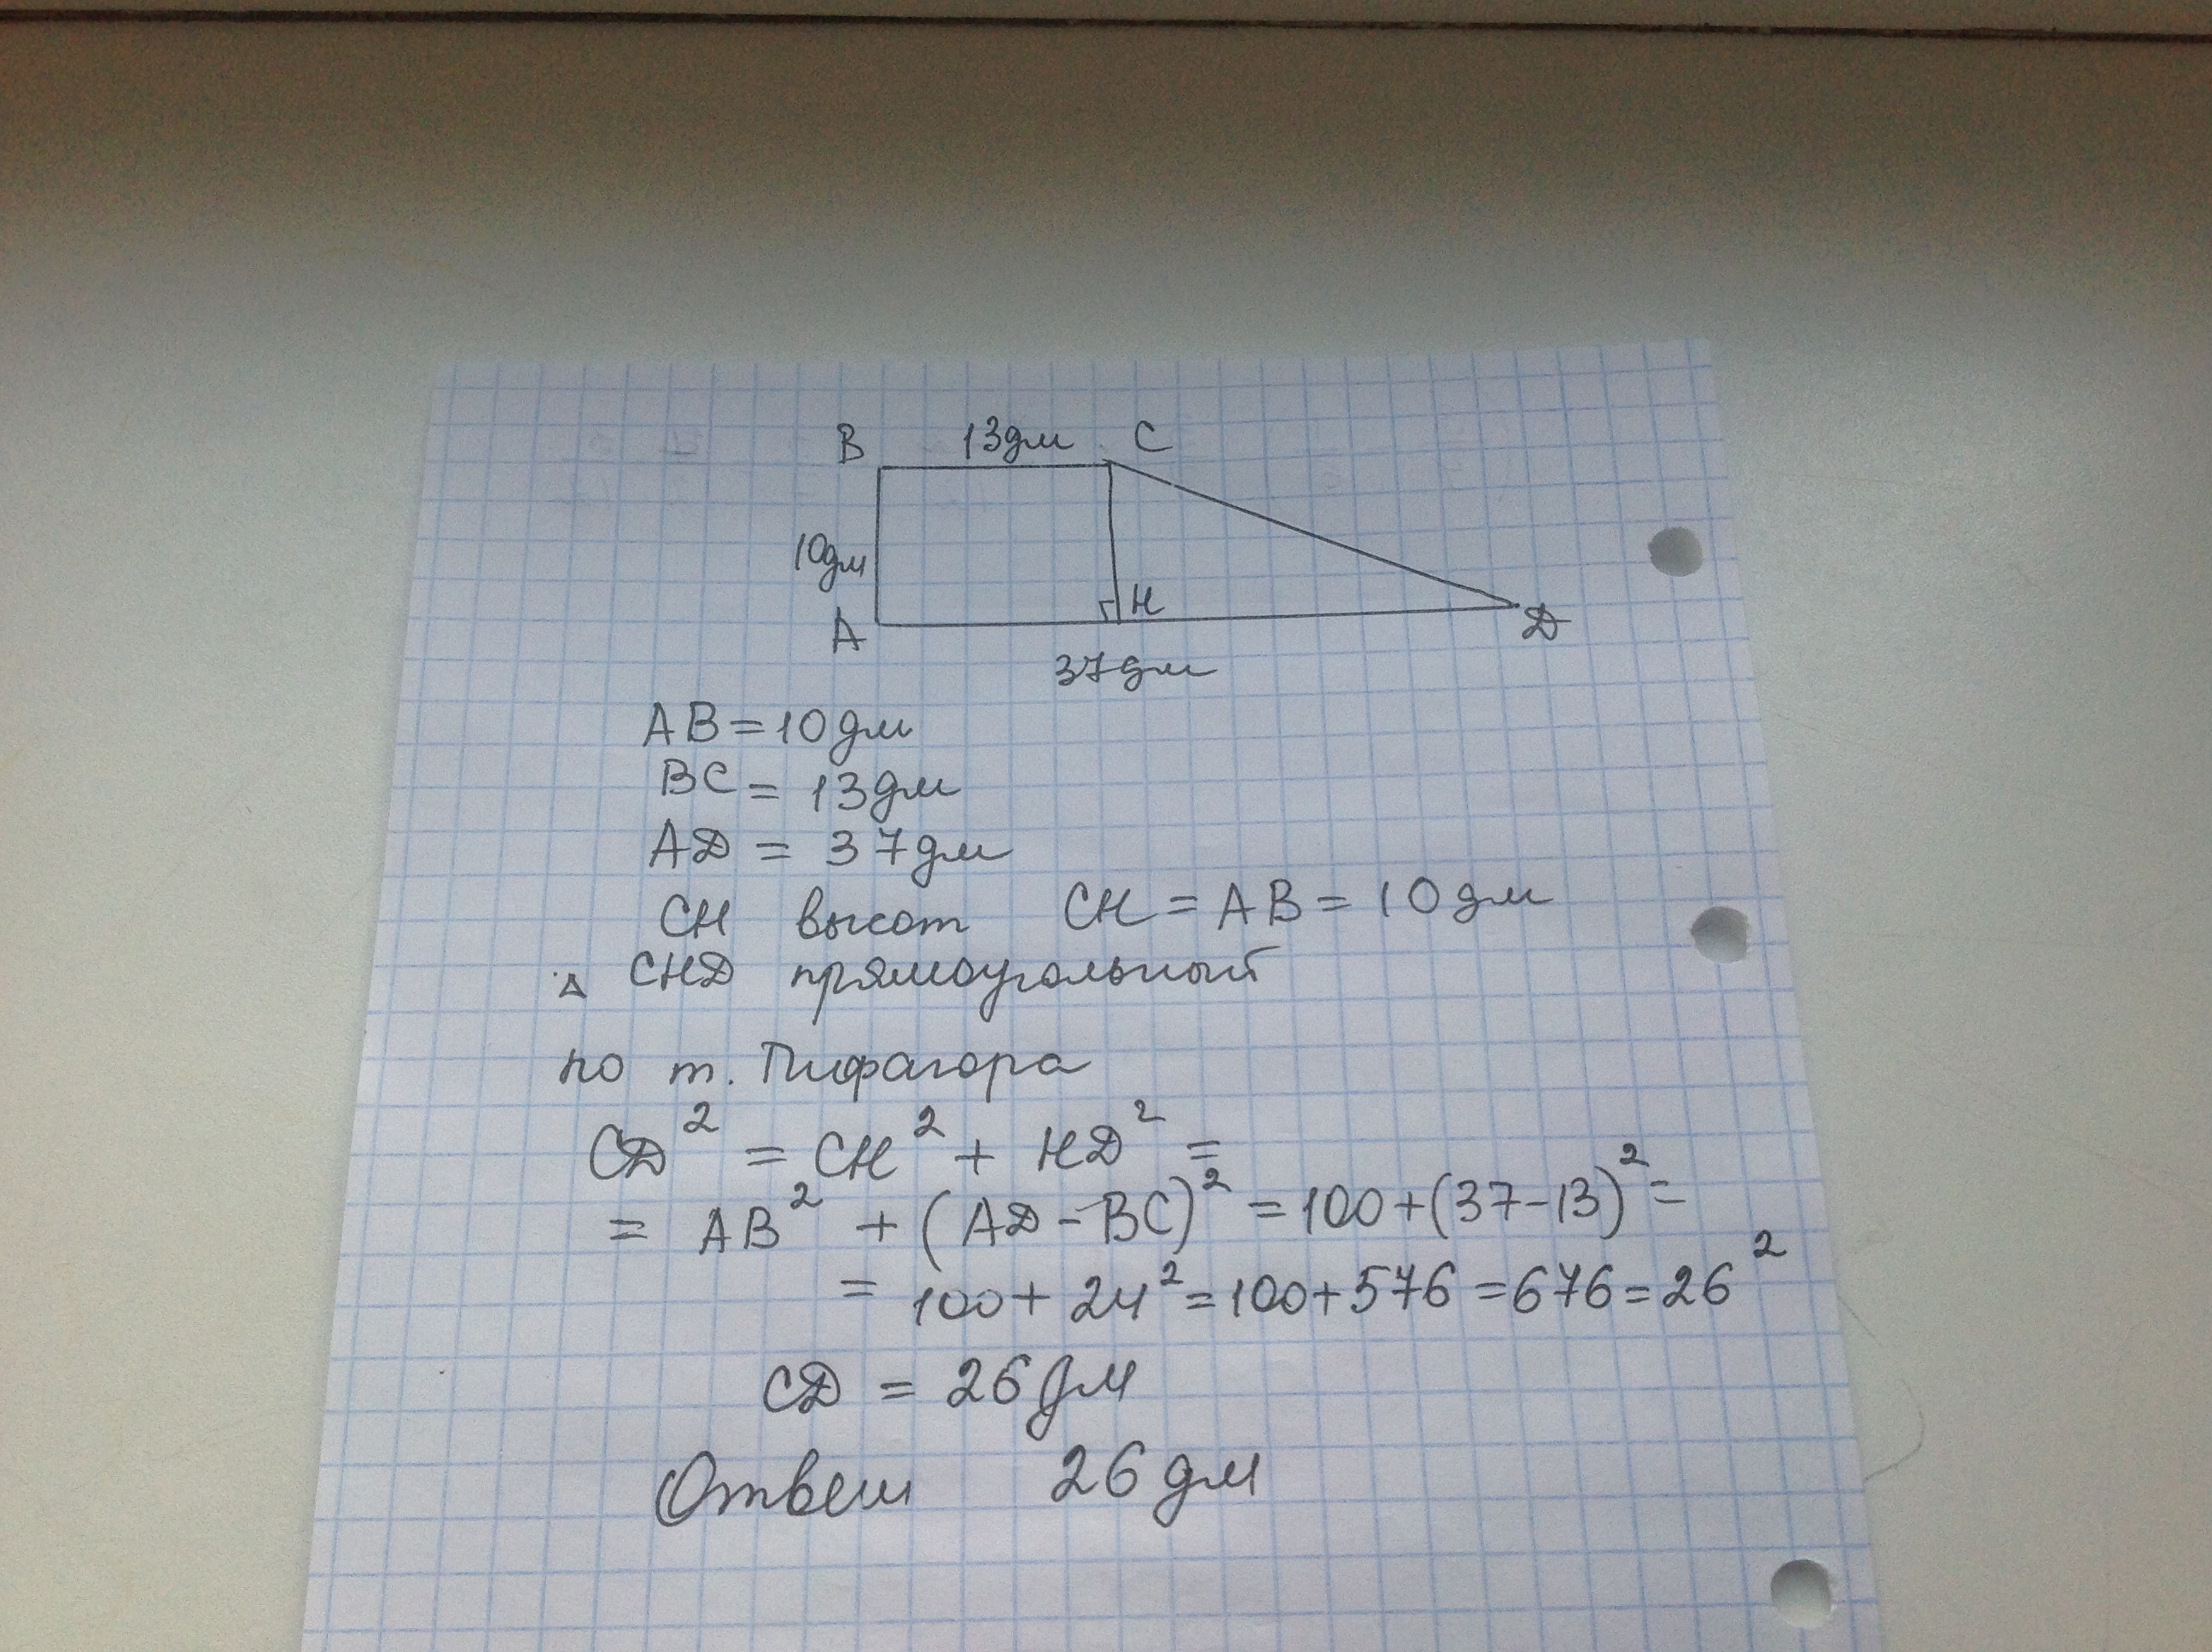 B 13дм C
10дм
A H D
37дм
AB = 10 дм
BC = 13дм
AD = 37дм
CH высот CH = AB = 10 дм
△ CHD прямоугольный
по т. Пифагора
CD² = CH² + HD² =
= AB² + (AD - BC)² = 100 + (37-13)² =
= 100 + 24² = 100 + 576 = 676 = 26²
CD = 26 дм
Ответ 26 дм